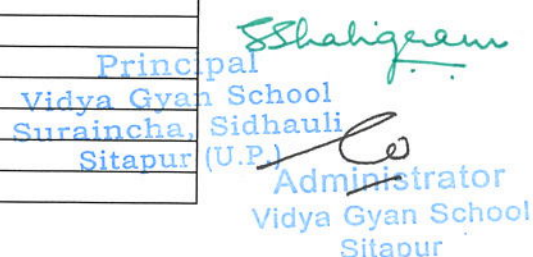 SShaligram
Principal
Vidya Gyan School
Suraincha, Sidhauli
Sitapur (U.P.)
Administrator
Vidya Gyan School
Sitapur